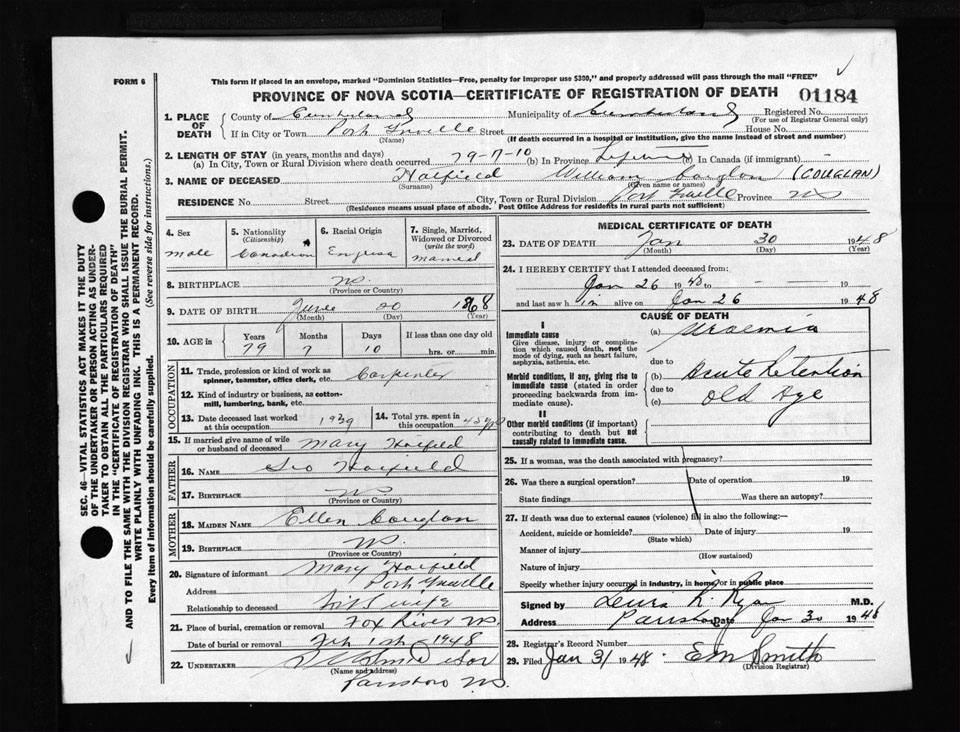 FORM 6
This form if placed in an envelope, marked "Dominion Statistics—Free, penalty for improper use $300," and properly addressed will pass through the mail "FREE"
PROVINCE OF NOVA SCOTIA—CERTIFICATE OF REGISTRATION OF DEATH
01184
SEC. 46—VITAL STATISTICS ACT MAKES IT THE DUTY
OF THE UNDERTAKER OR PERSON ACTING AS UNDER-
TAKER TO OBTAIN ALL THE PARTICULARS REQUIRED
IN THE "CERTIFICATE OF REGISTRATION OF DEATH"
AND TO FILE THE SAME WITH THE DIVISION REGISTRAR WHO SHALL ISSUE THE BURIAL PERMIT.
WRITE PLAINLY WITH UNFADING INK. THIS IS A PERMANENT RECORD.
Every item of information should be carefully supplied. (See reverse side for instructions.)
1. PLACE OF DEATH
County of Cumberland Municipality of Cumberland Registered No.
(For use of Registrar General only)
If in City or Town Port Greville Street House No.
(Name) (If death occurred in a hospital or institution, give the name instead of street and number)
2. LENGTH OF STAY (in years, months and days)
(a) In City, Town or Rural Division where death occurred 79-7-10 (b) In Province Lifetime (c) In Canada (if immigrant) —
3. NAME OF DECEASED Hatfield William Couglan (COUGLAN)
(Surname) (Given name or names)
RESIDENCE No. Street City, Town or Rural Division Port Greville Province NS
(Residence means usual place of abode. Post Office Address for residents in rural parts not sufficient)
4. Sex
male
5. Nationality
(Citizenship)
Canadian
6. Racial Origin
English
7. Single, Married,
Widowed or Divorced
(write the word)
married
8. BIRTHPLACE NS.
(Province or Country)
9. DATE OF BIRTH June 20 1868
(Month) (Day) (Year)
10. AGE in Years Months Days If less than one day old
79 7 10 hrs. or min.
OCCUPATION
11. Trade, profession or kind of work as
spinner, teamster, office clerk, etc. Carpenter
12. Kind of industry or business, as cotton-
mill, lumbering, bank, etc.
13. Date deceased last worked
at this occupation 1939
14. Total yrs. spent in
this occupation 45 yrs
15. If married give name of wife
or husband of deceased Mary Hatfield
FATHER
16. NAME Geo Hatfield
17. BIRTHPLACE NS
(Province or Country)
MOTHER
18. MAIDEN NAME Ellen Couglan
19. BIRTHPLACE NS.
(Province or Country)
20. Signature of informant Mary Hatfield
Address Port Greville
Relationship to deceased wife
21. Place of burial, cremation or removal Fox River NS.
Date of burial or removal Feb 1st 1948
22. UNDERTAKER
(Name and address)
Parrsboro NS.
MEDICAL CERTIFICATE OF DEATH
23. DATE OF DEATH Jan 30 1948
(Month) (Day)
24. I HEREBY CERTIFY that I attended deceased from:
Jan 26 1948 to — — 19
and last saw h im alive on Jan 26 1948
CAUSE OF DEATH
I
Immediate cause
Give disease, injury or complica-
tion which caused death, not the
mode of dying, such as heart failure,
asphyxia, asthenia, etc.
(a) Uraemia
due to
Morbid conditions, if any, giving rise to
immediate cause (stated in order
proceeding backwards from im-
mediate cause).
(b) Acute Retention
due to
(c) Old Age
II
Other morbid conditions (if important)
contributing to death but not
causally related to immediate cause.
25. If a woman, was the death associated with pregnancy?
26. Was there a surgical operation? Date of operation 19
State findings Was there an autopsy?
27. If death was due to external causes (violence) fill in also the following:—
Accident, suicide or homicide? Date of injury 19
(State which)
Manner of injury
(How sustained)
Nature of injury
Specify whether injury occurred in industry, in home, or in public place
Signed by R. Ryan M.D.
Address Parrsboro Date Jan 30 1948
28. Registrar's Record Number
29. Filed Jan 31 1948. EM Smith
(Division Registrar)